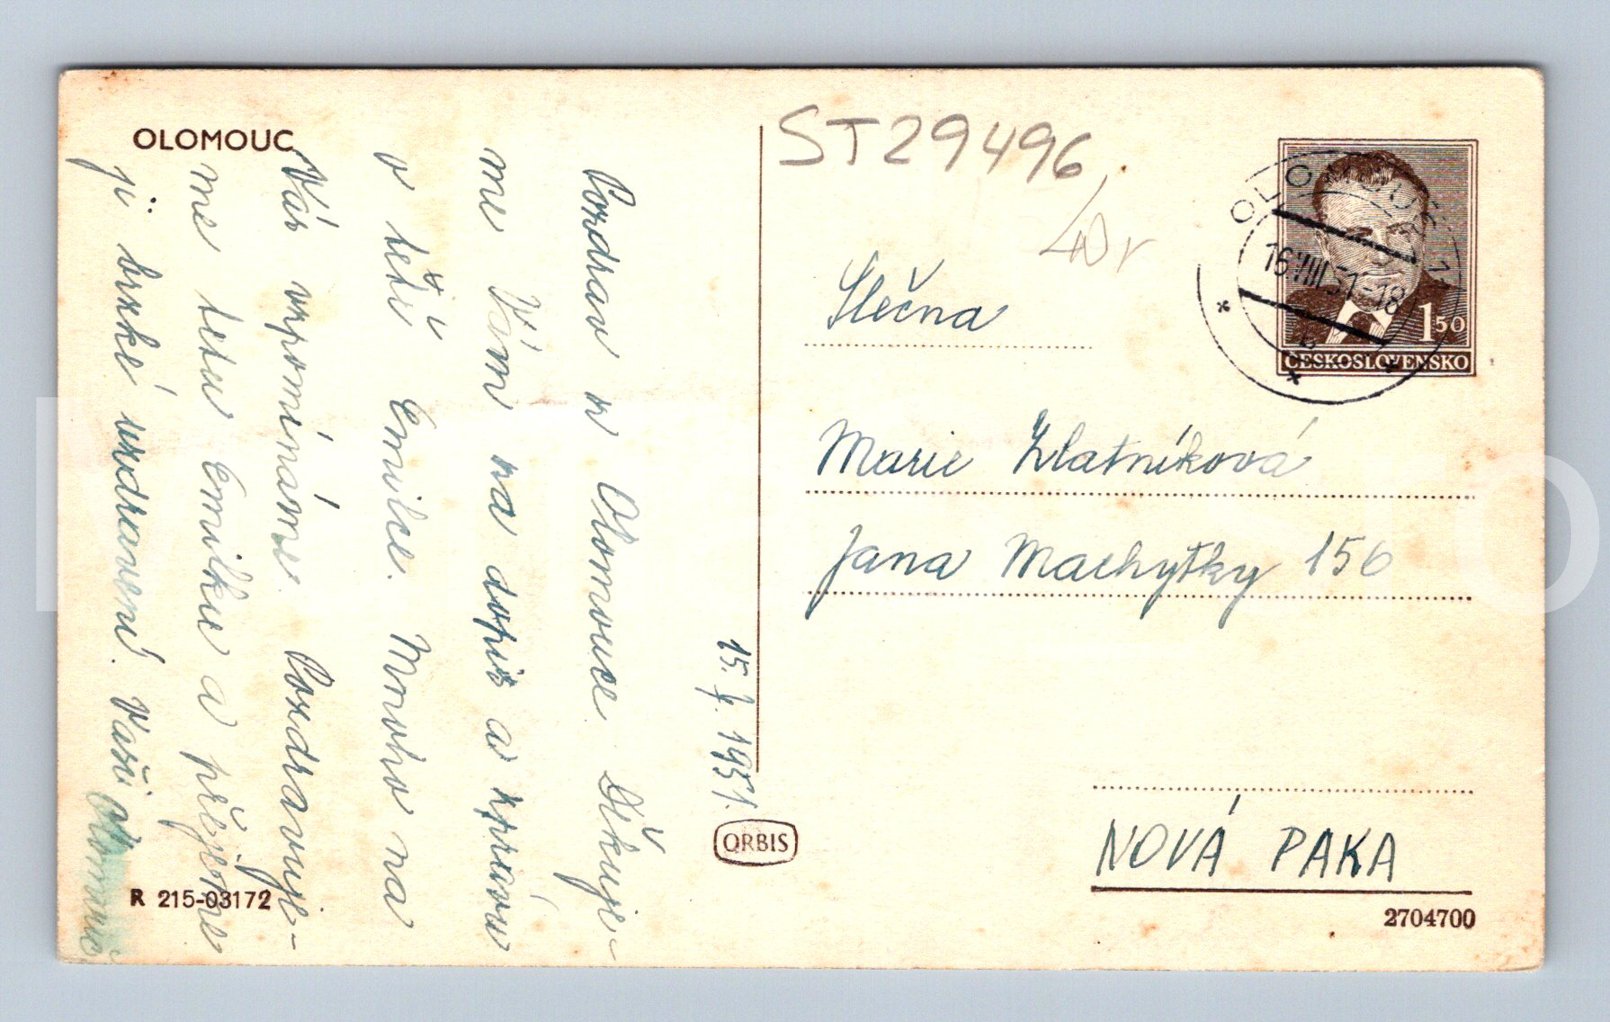 OLOMOUC
Pozdrav z Olomouce. Děkuje-
me Vám za dopis a zprávu
o tetě Emilce. Mnoho na
Vás vzpomínáme. Pozdravuje-
me tetu Emilku a přejeme
jí brzké uzdravení. Vaši Olomouc
R 215-03172
15. 1951.
ORBIS
ST29496
40,-
OLOMOUC 1
16.VIII.51-18
1 50
ČESKOSLOVENSKO
Slečna
Marie Zlatníková
Jana Machytky 156
NOVÁ PAKA
2704700